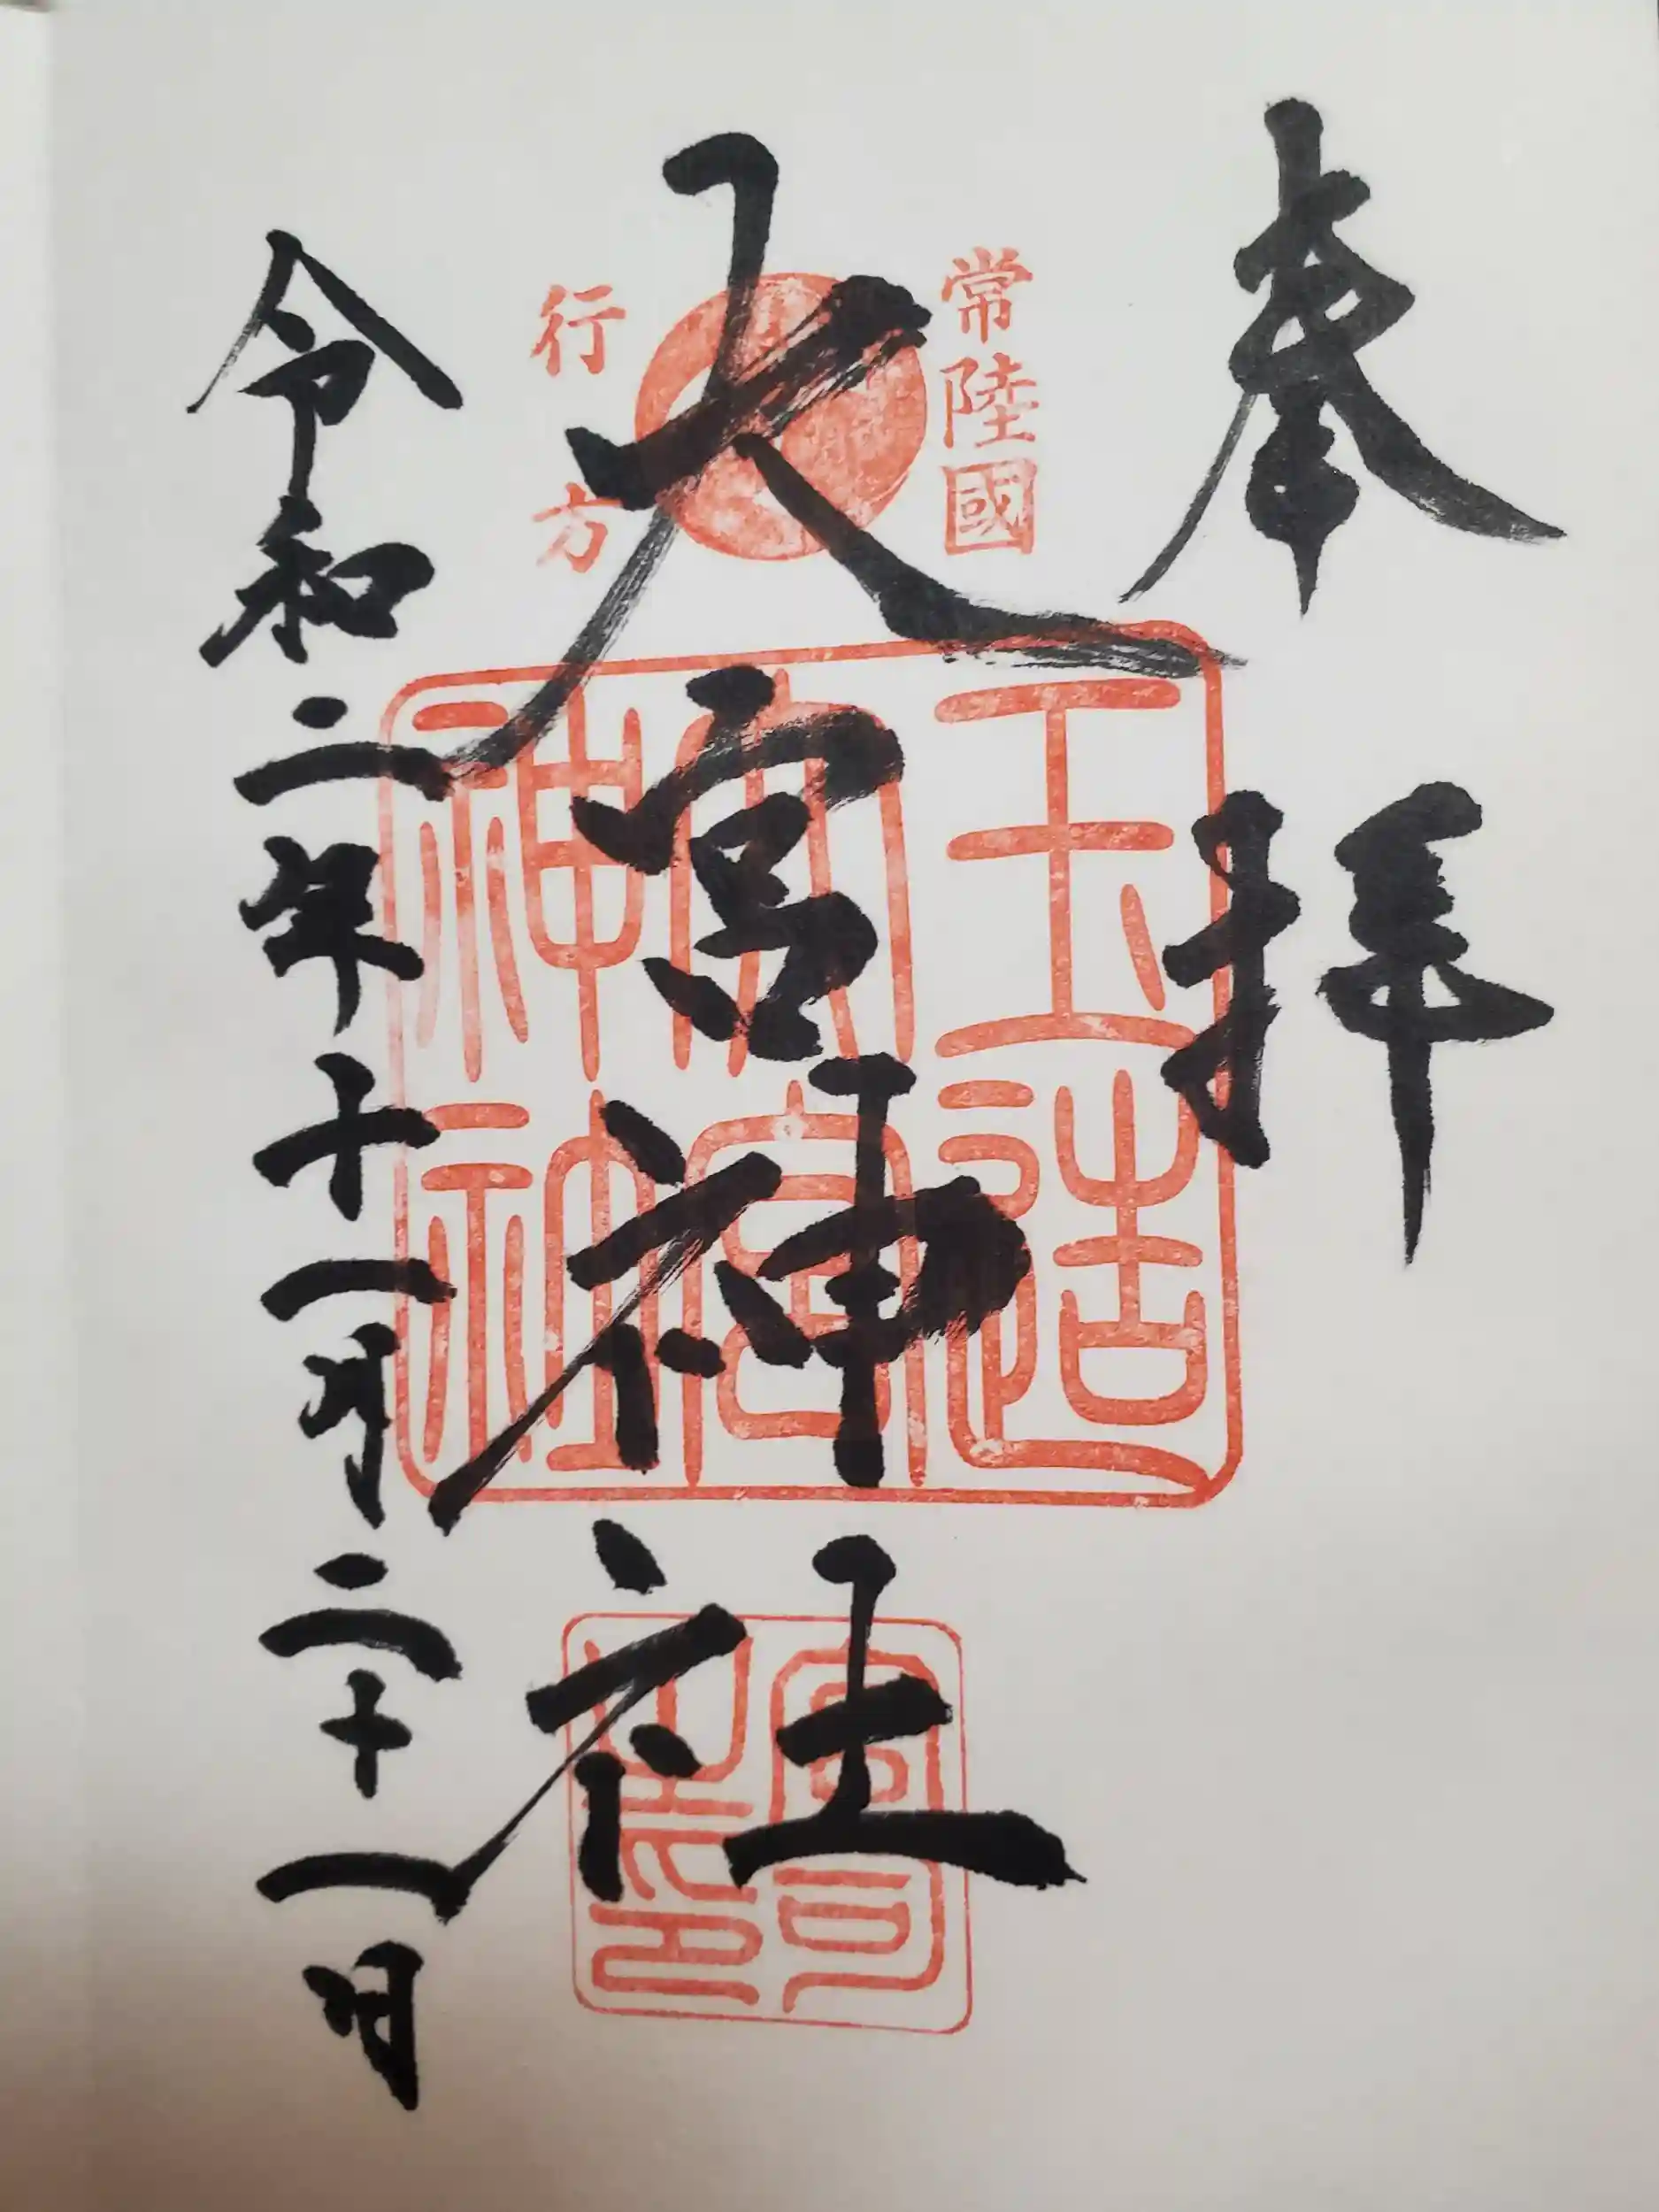 奉拝
常陸國
大宮神社
行方
玉造
大宮
神社
宮司
之印
令和二年十一月二十一日